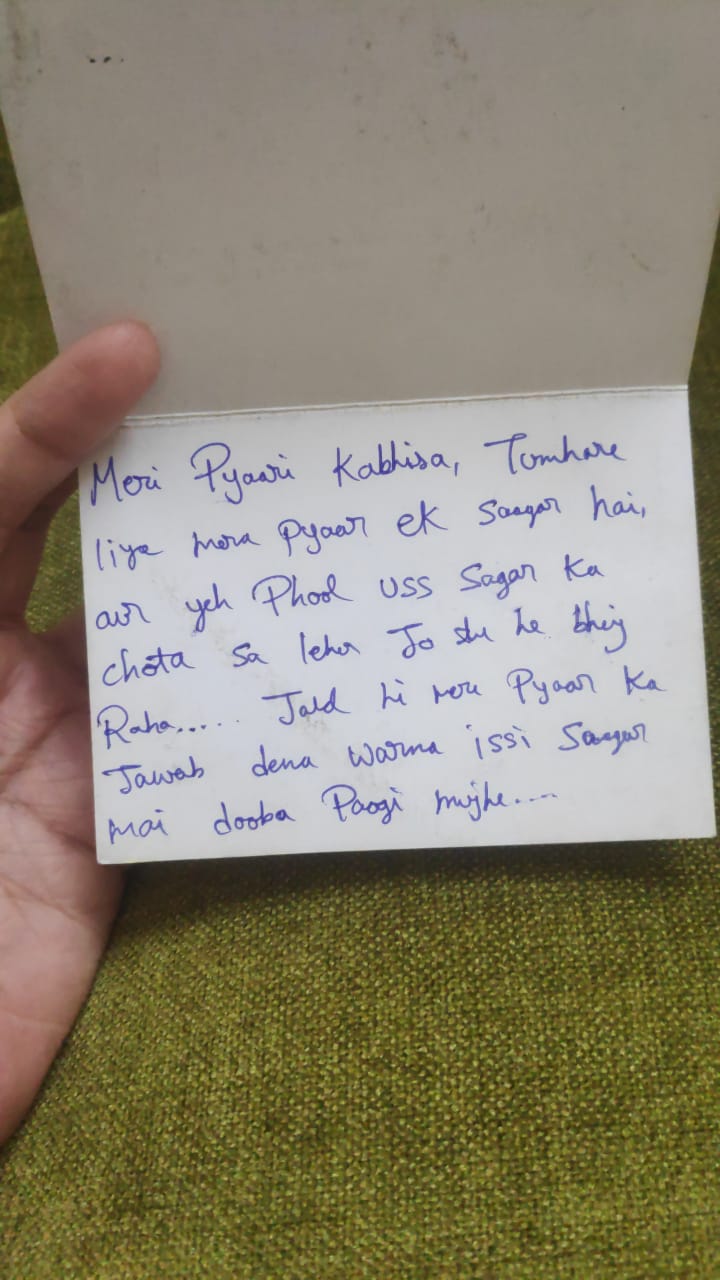 Meri Pyaari Kabhisa, Tumhare
liye mera pyaar ek saagar hai,
aur yeh Phool uss Sagar ka
chota sa leher Jo he bhej
Raha..... Jald hi mere Pyaar ka
Jawab dena warna issi Saagar
mai dooba Paogi mujhe....